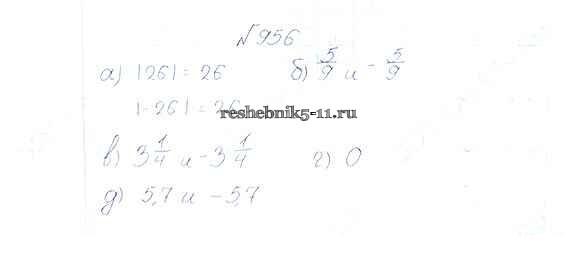 №956
а) |26| = 26 б) 5/9 и - 5/9
|-26| = 26
reshebnik5-11.ru
в) 3 1/4 и -3 1/4 г) 0
д) 5,7 и -5,7